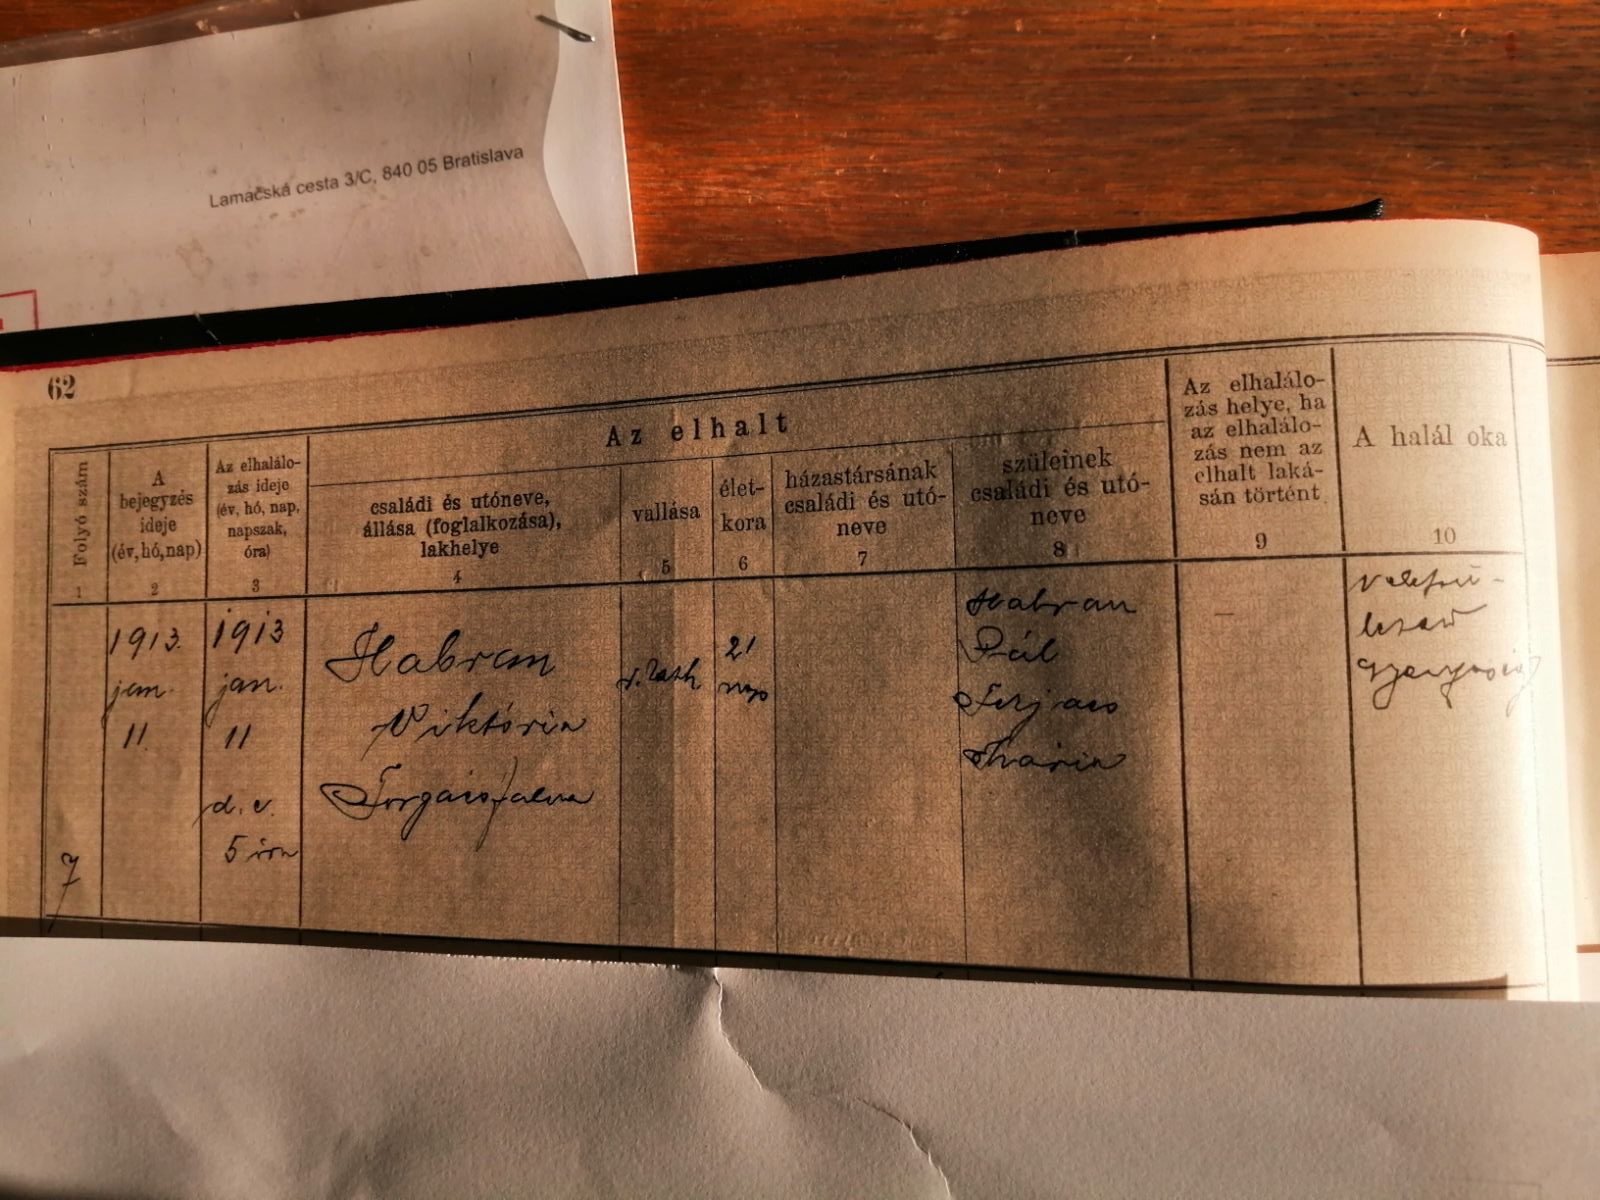 Lamačská cesta 3/C, 840 05 Bratislava
62
Az elhalt
Folyó szám
1
A
bejegyzés
ideje
(év, hó, nap)
2
Az elhaláló-
zás ideje
(év, hó, nap,
napszak,
óra)
3
családi és utóneve,
állása (foglalkozása),
lakhelye
4
vallása
5
élet-
kora
6
házastársának
családi és utó-
neve
7
szüleinek
családi és utó-
neve
8
Az elhaláló-
zás helye, ha
az elhaláló-
zás nem az
elhalt laká-
sán történt
9
A halál oka
10
7
1913.
jan.
11.
1913
jan.
11
d. e.
5 óra
Habran
Viktória
Forgácsfalva
r. kath.
21
nap
Habran
Pál
Mária
–
veleszü-
letett
gyengeség